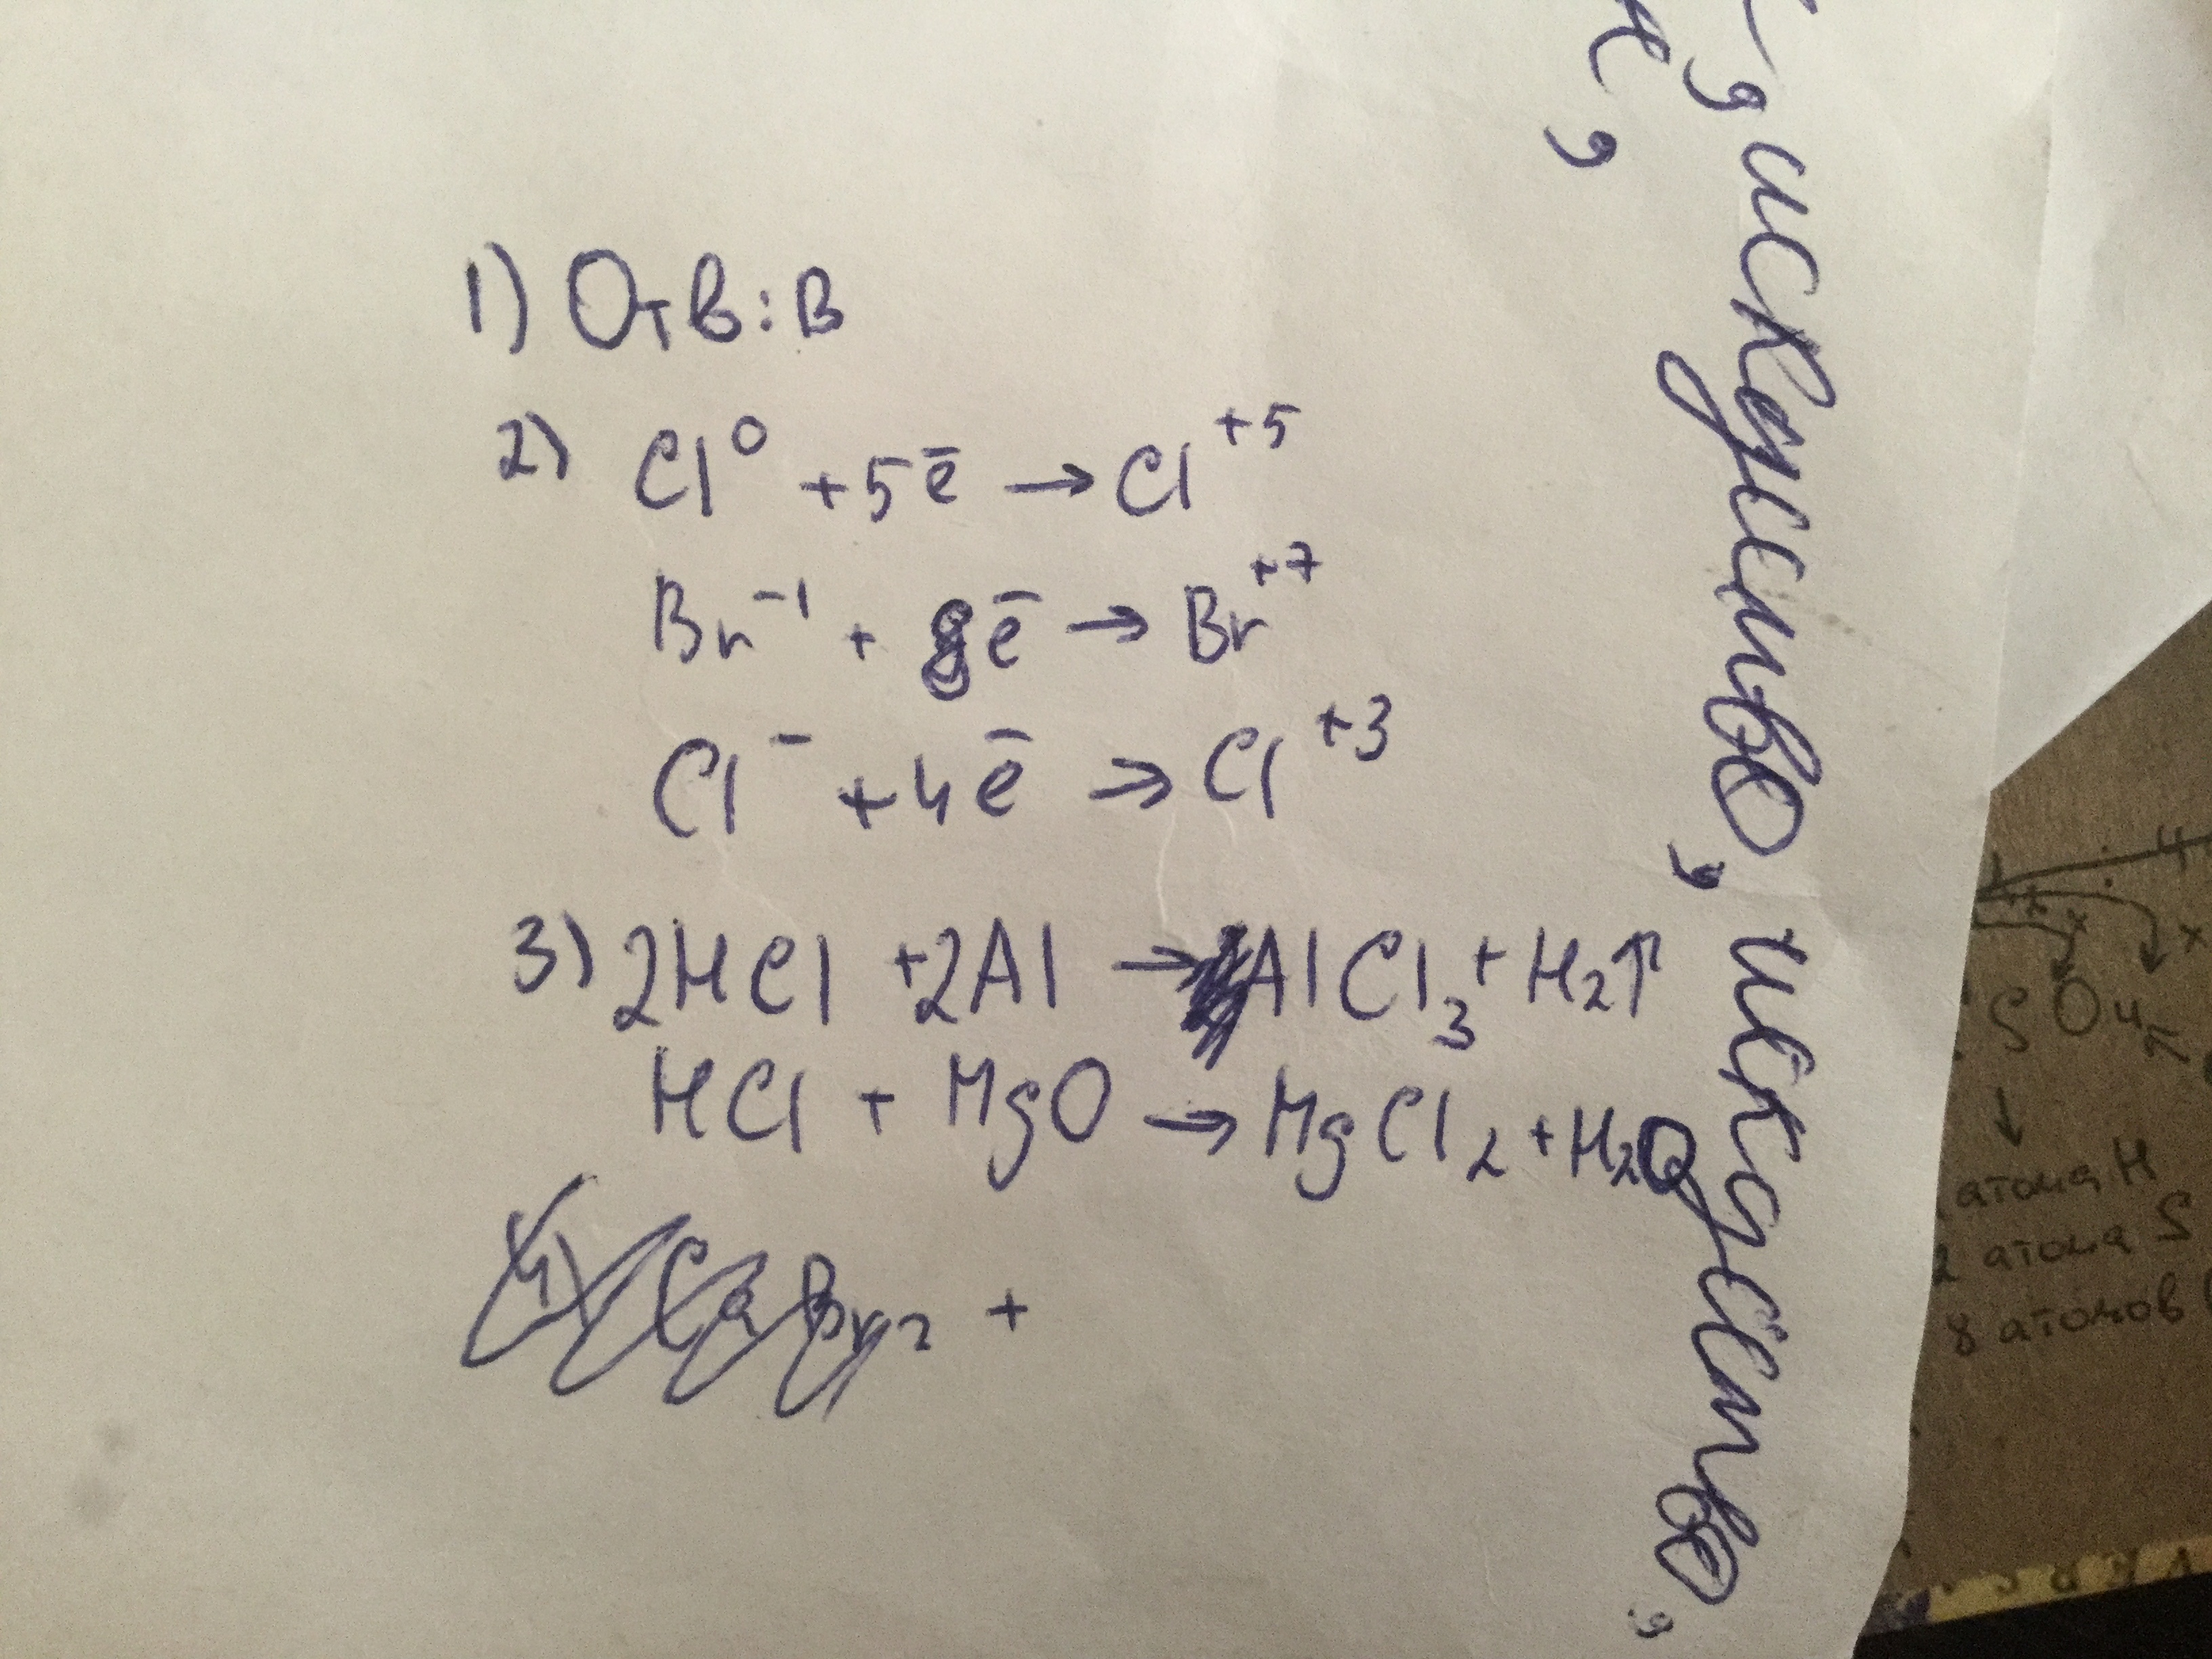 1) Отв: В
2) Cl⁰ + 5ē → Cl⁺⁵
Br⁻¹ + 8ē → Br⁺⁷
Cl⁻ + 4ē → Cl⁺³
3) 2HCl + 2Al → AlCl₃ + H₂↑
HCl + MgO → MgCl₂ + H₂O
4) CaBr₂ +
, искусство, искусство,
,
SO₄
↓
атома H
2 атома S
8 атомов